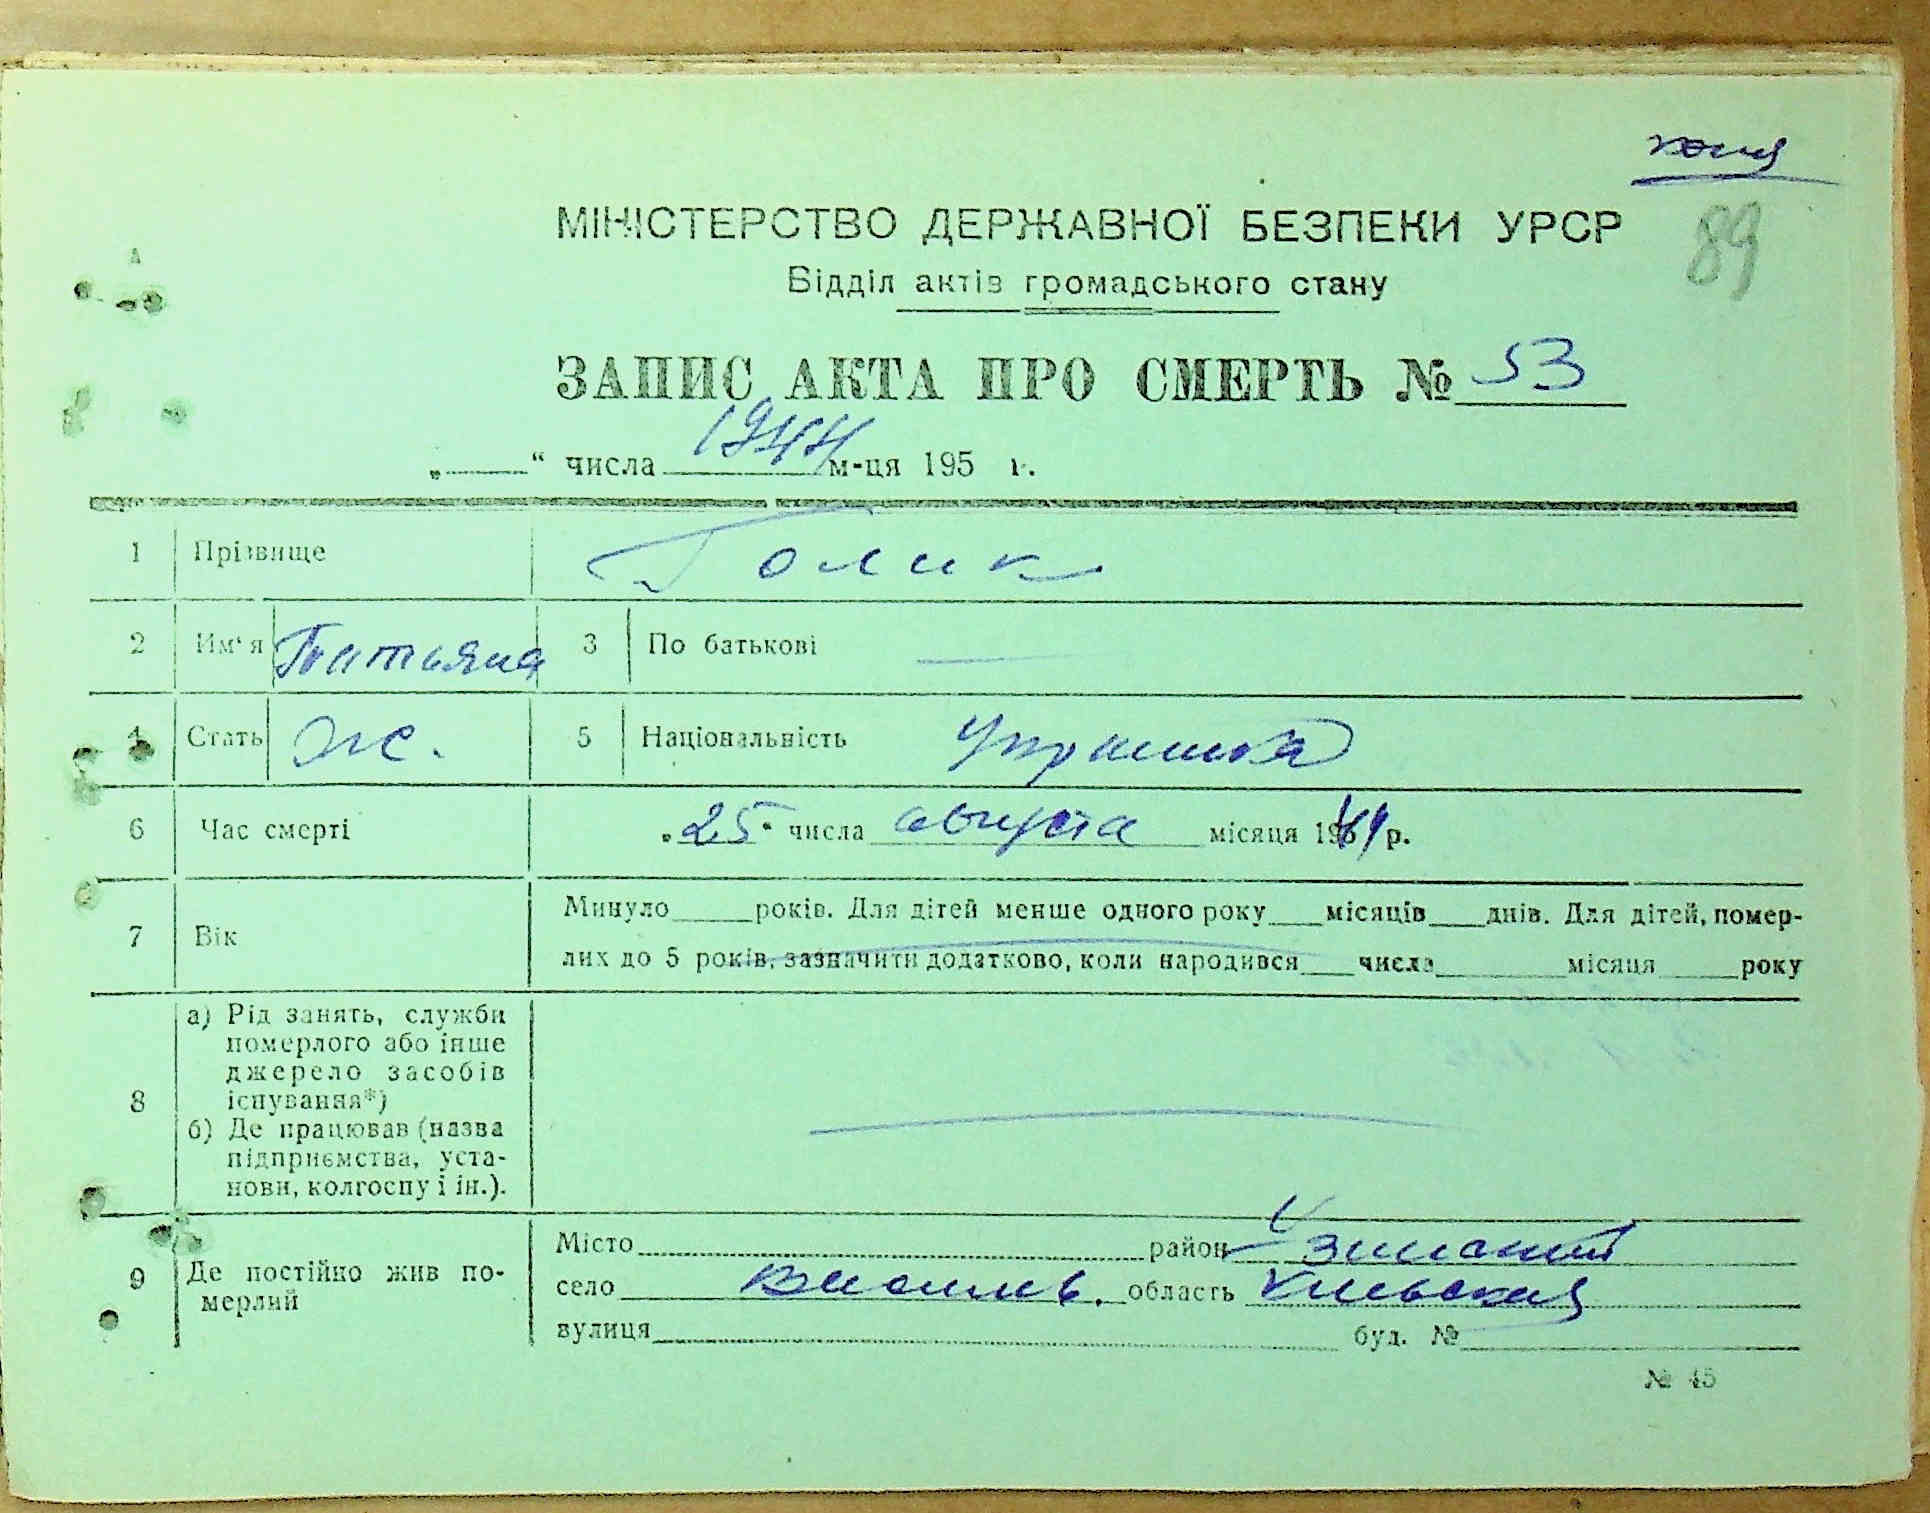 копия
89
МІНІСТЕРСТВО ДЕРЖАВНОЇ БЕЗПЕКИ УРСР
Відділ актів громадського стану
ЗАПИС АКТА ПРО СМЕРТЬ № 53
„ “ числа 1944 м-ця 195 г.
1 Прізвище Голик
2 Им'я Татьяна 3 По батькові —
4 Стать ж. 5 Національність Украинка
6 Час смерті „25“ числа августа місяця 1944 р.
7 Вік Минуло років. Для дітей менше одного року місяців днів. Для дітей, помер-
лих до 5 років, зазначити додатково, коли народився числа місяця року
8 а) Рід занять, служби
померлого або інше
джерело засобів
існування*)
б) Де працював (назва
підприємства, уста-
нови, колгоспу і ін.).
9 Де постійно жив по-
мерлий
Місто район Узинский
село область Киевская
вулиця буд. №
№ 45